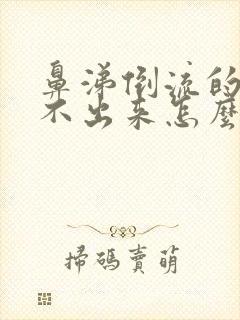 鼻涕倒流的
不出来怎麼
掃碼賣萌